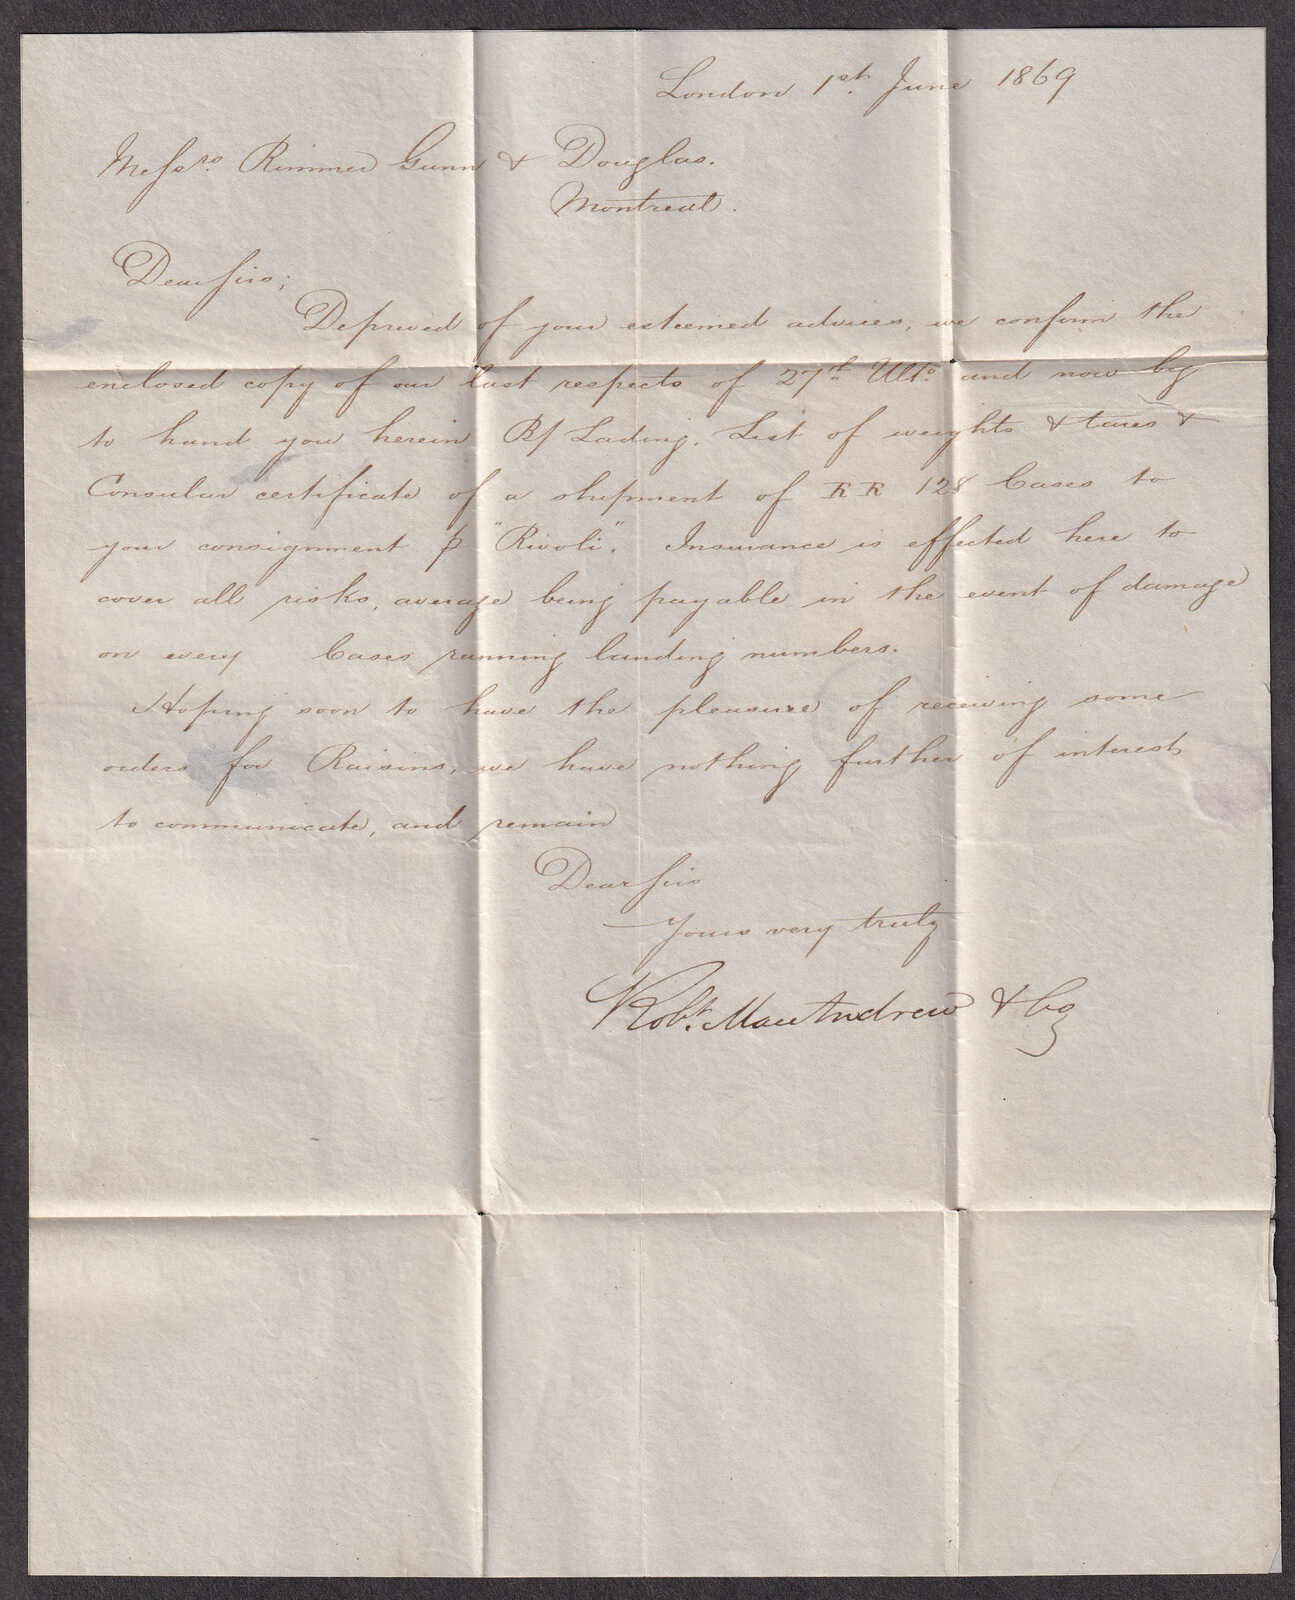 London 1st. June 1869
Messrs. Rimmer Gunn & Douglas.
Montreal.
Dear Sirs;
Deprived of your esteemed advices, we confirm the
enclosed copy of our last respects of 27th Ulto. and now beg
to hand you herein B/ Lading, List of weights & tares &
Consular certificate of a shipment of RR 128 Cases to
your consignment p "Rivoli". Insurance is effected here to
cover all risks, average being payable in the event of damage
on every Cases running landing numbers.
Hoping soon to have the pleasure of receiving some
orders for Raisins, we have nothing further of interest
to communicate, and remain
Dear Sirs
Yours very truly
Robt. MacAndrew & Co